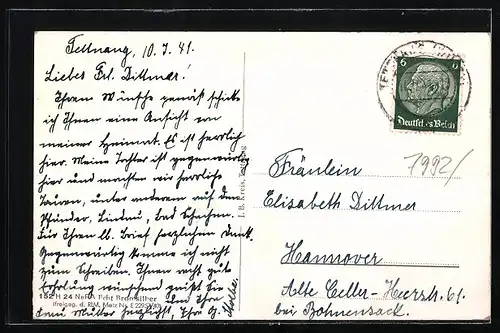 Tettnang, 10.7.41.
Liebes Frl. Dittmar!
Ihrem Wunsche gemäß schicke
ich Ihnen eine Ansicht von
meiner Heimat. Es ist herrlich
hier. Meine Tochter ist gegenwärtig
hier und machten wir herrliche
Touren, unter anderem auf den
Pfänder, Lindau, Bad Schachen.
Für Ihren lb. Brief herzlichen Dank.
Gegenwärtig komme ich nicht
zum Schreiben. Ihnen recht gute
Erholung wünschend grüßt Sie
und Ihre
Mutter herzlichst, Ihre
152 H 24 NaRA Echt Bromsilber
Freigeg. d. RLM
J. B. Kreis, Tettnang
6 6
Deutsches Reich
7992/
Fräulein
Elisabeth Dittmer
Hannover
Alte Celler-Heerstr. 61.
bei Bohnensack.